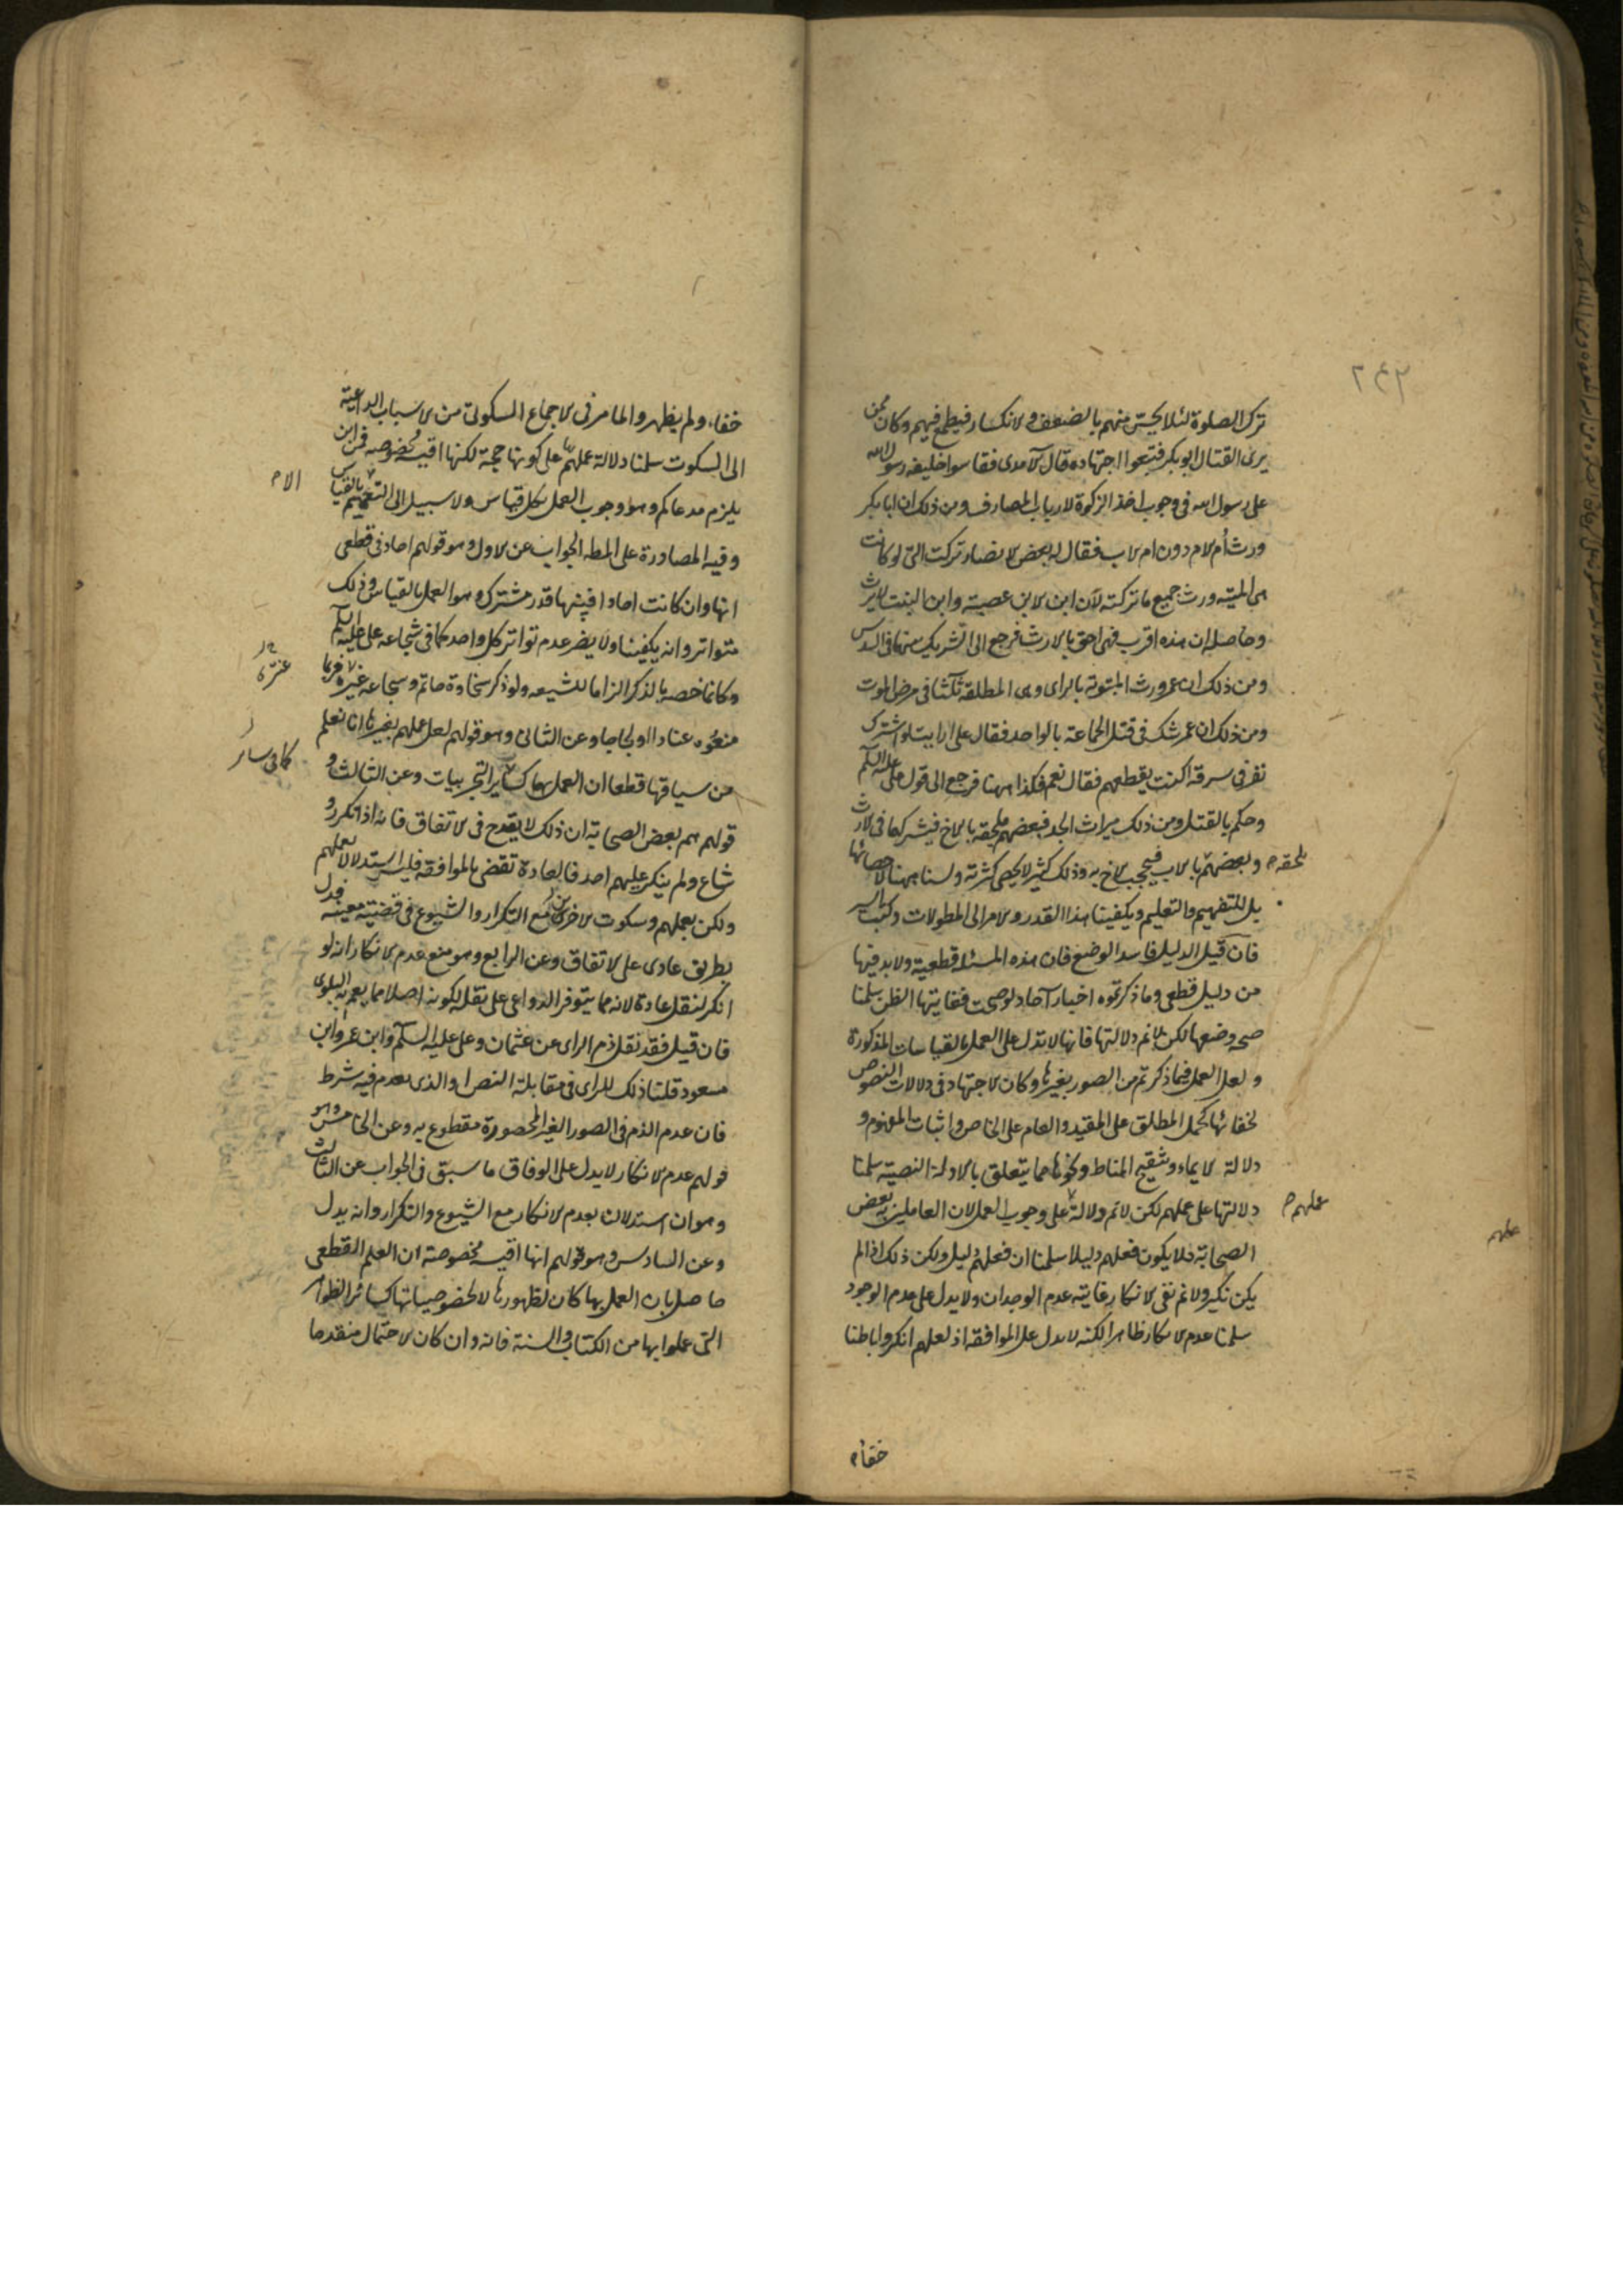 ترك الصلوة لئلا يحس منهم بالضعف والانكسار فيطمع فيهم وكان ممن
يرى القتال ابو بكر فتبعوا اجتهاده قال الآمدى فقاسوا خليفة رسول الله
على رسول الله فى وجوب اخذ الزكوة لارباب المصارف ومن ذلك ان ابا بكر
ورث أم الام دون ام الاب فقال له بعض الانصار تركت التى لو كانت
هى الميتة ورث جميع ما تركته لان ابن الابن عصبة وابن البنت لا يرث
وحاصله ان هذه اقرب فهى احق بالارث فرجع الى التشريك بينهما فى السدس
ومن ذلك ان عمر ورث المبتوتة بالراى وهى المطلقة ثلثا فى مرض الموت
ومن ذلك ان عمر شك فى قتل الجماعة بالواحد فقال على ارايت لو اشترك
نفر فى سرقة اكنت تقطعهم فقال نعم فكذا ههنا فرجع الى قول على عليه السلم
وحكم بالقتل ومن ذلك ميراث الجد فبعضهم يلحقه بالاخ فيشركها فى الارث
وبعضهم بالاب فيحجب الاخ به وذلك كثير لا يحصى كثرته ولسنا ههنا لاحصائها
يلحقه
بل للتفهيم والتعليم ويكفينا هذا القدر والامر الى المطولات وكتب السير
فان قيل الدليل فاسد الوضع فان هذه المسئلة قطعية ولا بد فيها
من دليل قطعى وما ذكرتموه اخبار آحاد لو صحت فغايتها الظن سلمنا
صحة وضعها لكن لا نم دلالتها فانها لا تدل على العمل بالقياسات المذكورة
ولعل العمل فيما ذكرتم من الصور بغيرها وكان الاجتهاد فى دلالات النصوص
لخفائها كحمل المطلق على المقيد والعام على الخاص واثبات المفهوم و
دلالة الايماء وتنقيح المناط ونحوها مما يتعلق بالادلة النصية سلمنا
دلالتها على عملهم لكن لا نم دلالة على وجوب العمل لان العاملين به بعض
عملهم
عملهم
الصحابة فلا يكون فعلهم دليلا سلمنا ان فعلهم دليل ولكن ذلك اذا لم
يكن نكير ولا نم نفى الانكار غايته عدم الوجدان ولا يدل على عدم الوجود
سلمنا عدم الانكار ظاهرا لكنه لا يدل على الموافقة اذ لعلهم انكروا باطنا
خفاء
خفاء ولم يظهروا لما مر فى الاجماع السكوتى من الاسباب الداعية
الى السكوت سلمنا دلالة عملهم بها على كونها حجة لكنها اقيسة مخصوصة فمن اين
يلزم مدعاكم وهو وجوب العمل بكل قياس ولا سبيل الى التعميم الا بالقياس
الا
وفيه المصادرة على المطه الجواب عن الاول وهو قولهم احاد فى قطعى
انها وان كانت احادا فبينها قدر مشترك هو العمل بالقياس وذلك
متواتر وانه يكفينا ولا يضر عدم تواتر كل واحد كما فى شجاعة على عليه السلم
وكانما خصه بالذكر الزاما للشيعه ولو ذكر سخاوة حاتم وشجاعة غيره فربما
عنترة
منعوه عنادا او لجاجا وعن الثانى وهو قولهم لعل عملهم بغيرها انا نعلم
من سياقها قطعا ان العمل بها كسائر التجريبيات وعن الثالث و
كما فى سائر
قولهم هم بعض الصحابة ان ذلك لا يقدح فى الاتفاق فانه اذا تكرر و
شاع ولم ينكر عليهم احد فالعادة تقضى بالموافقة فليس استدلالا بعملهم
ولكن بعملهم وسكوت الاخرين مع التكرار والشيوع فى قضية معينة فدل
بطريق عادى على الاتفاق وعن الرابع وهو منع عدم الانكار انه لو
انكر لنقل عادة لانه مما يتوفر الدواعى على نقله لكونه اصلا مما يعم به البلوى
فان قيل فقد نقل ذم الراى عن عثمان وعلى عليه السلم وابن عمر وابن
مسعود قلنا ذلك للراى فى مقابلة النص او الذى يعدم فيه شرط
فان عدم الذم فى الصور الغير المحصورة مقطوع به وعن الخامس وهو
قولهم عدم الانكار لا يدل على الوفاق ما سبق فى الجواب عن الثالث
وهو ان استدلالنا بعدم الانكار مع الشيوع والتكرار وانه يدل
وعن السادس وهو قولهم انها اقيسة مخصوصة ان العلم القطعى
حاصل بان العمل بها كان لظهورها لا لخصوصياتها كسائر الظواهر
التى عملوا بها من الكتاب والسنة فانه وان كان الاحتمال منقدحا